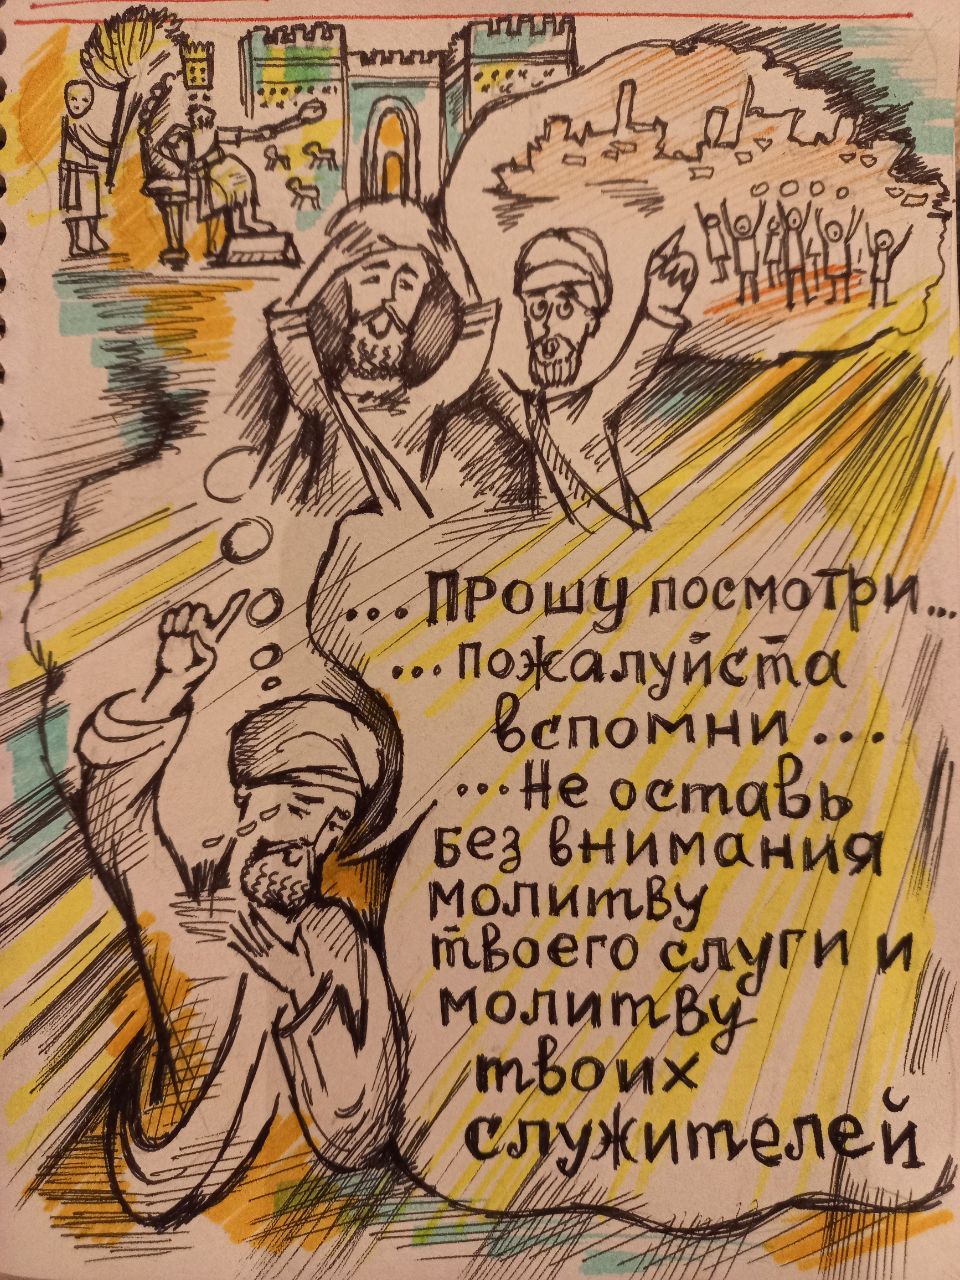 ...Прошу посмотри...
...пожалуйста
вспомни...
...Не оставь
без внимания
молитву
твоего слуги и
молитву
твоих
служителей